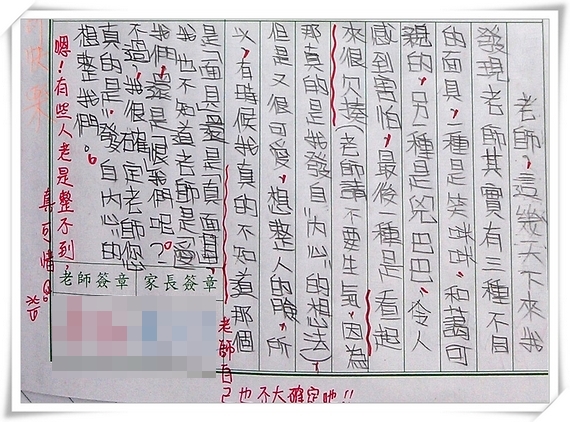 老師，這幾天下來我
發現老師其實有三種不同
的面具，一種是笑咪咪、和藹可
親的，另一種是兇巴巴、令人
感到害怕，最後一種是看起
來很欠揍（老師請不要生氣，因為
那真的是我發自"內心"的想法）
但是又很可愛，想整人的臉，所
以，有時候我真的不知道那個
是「面具」還是「真面目」，
我也不知道老師是愛
我們，還是恨我們吧？
不過，我很確定老師您
真的是"發自內心"的
想整我們。
老師自己也不大確定吔!!
嗯！有些人老是整不到，
真可惜。
家長簽章
老師簽章